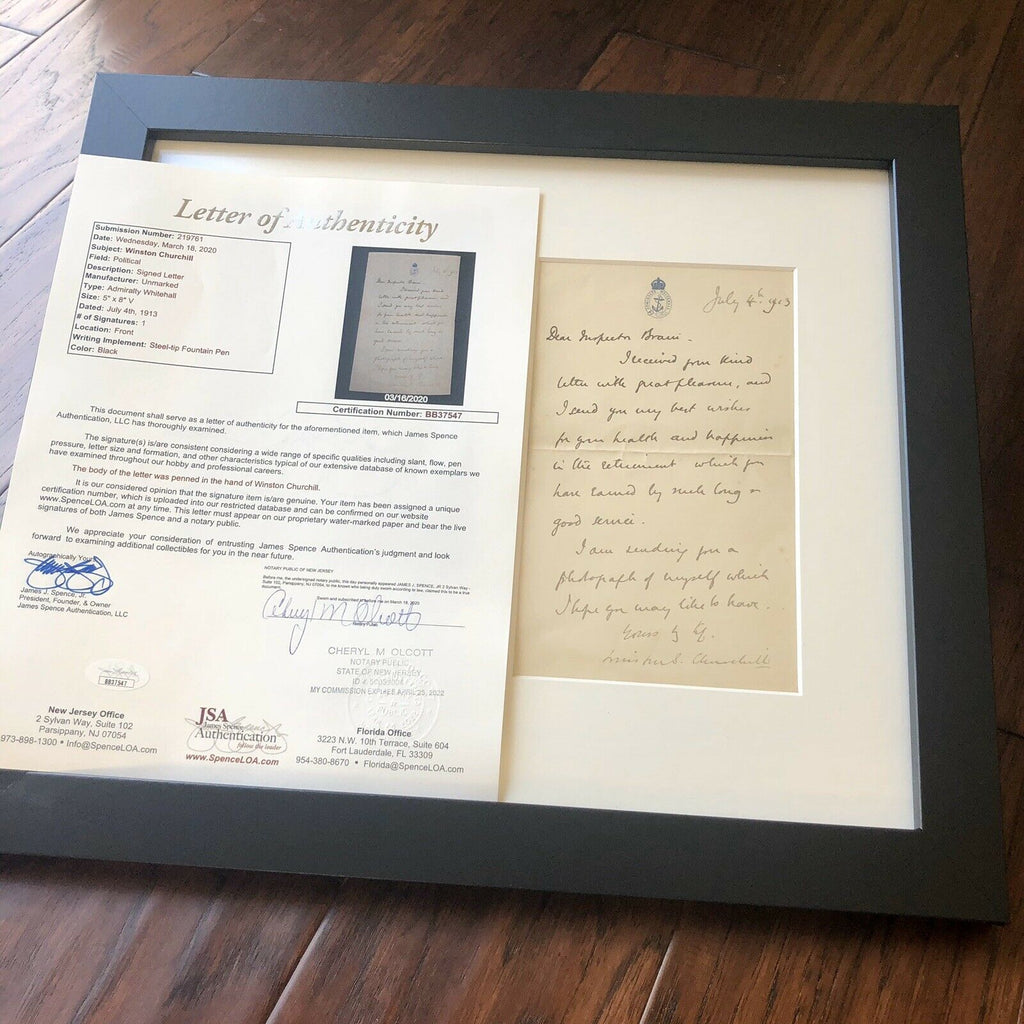 Letter of Authenticity
Submission Number: 219761
Date: Wednesday, March 18, 2020
Subject: Winston Churchill
Field: Political
Description: Signed Letter
Manufacturer: Unmarked
Type: Admiralty Whitehall
Size: 5" x 8" V
Dated: July 4th, 1913
# of Signatures: 1
Location: Front
Writing Implement: Steel-tip Fountain Pen
Color: Black
03/16/2020
Certification Number: BB37547
This document shall serve as a letter of authenticity for the aforementioned item, which James Spence
Authentication, LLC has thoroughly examined.
The signature(s) is/are consistent considering a wide range of specific qualities including slant, flow, pen
pressure, letter size and formation, and other characteristics typical of our extensive database of known exemplars we
have examined throughout our hobby and professional careers.
The body of the letter was penned in the hand of Winston Churchill.
It is our considered opinion that the signature item is/are genuine. Your item has been assigned a unique
certification number, which is uploaded into our restricted database and can be confirmed on our website
www.SpenceLOA.com at any time. This letter must appear on our proprietary water-marked paper and bear the live
signatures of both James Spence and a notary public.
We appreciate your consideration of entrusting James Spence Authentication's judgment and look
forward to examining additional collectibles for you in the near future.
Autographically You
James J. Spence, Jr.
President, Founder, & Owner
James Spence Authentication, LLC
NOTARY PUBLIC OF NEW JERSEY
Before me, the undersigned notary public, this day personally appeared JAMES J. SPENCE, JR 2 Sylvan Way -
Suite 102, Parsippany, NJ 07054, to me known who being duly sworn according to law, claimed this to be a true
document.
Sworn and subscribed to before me on March 18, 2020
Notary Public
Cheryl M Olcott
CHERYL M OLCOTT
NOTARY PUBLIC
STATE OF NEW JERSEY
MY COMMISSION EXPIRES APRIL 25, 2022
BB37547
New Jersey Office
2 Sylvan Way, Suite 102
Parsippany, NJ 07054
973-898-1300 • Info@SpenceLOA.com
JSA
James Spence
Authentication
follow the leader
www.SpenceLOA.com
Florida Office
3223 N.W. 10th Terrace, Suite 604
Fort Lauderdale, FL 33309
954-380-8670 • Florida@SpenceLOA.com
July 4th. 1913
Dear Inspector Brain.
I received your kind
letter with great pleasure, and
I send you my best wishes
for your health and happiness
in the retirement which you
have earned by such long &
good service.
I am sending you a
photograph of myself which
I hope you may like to have.
Yours
Winston S. Churchill